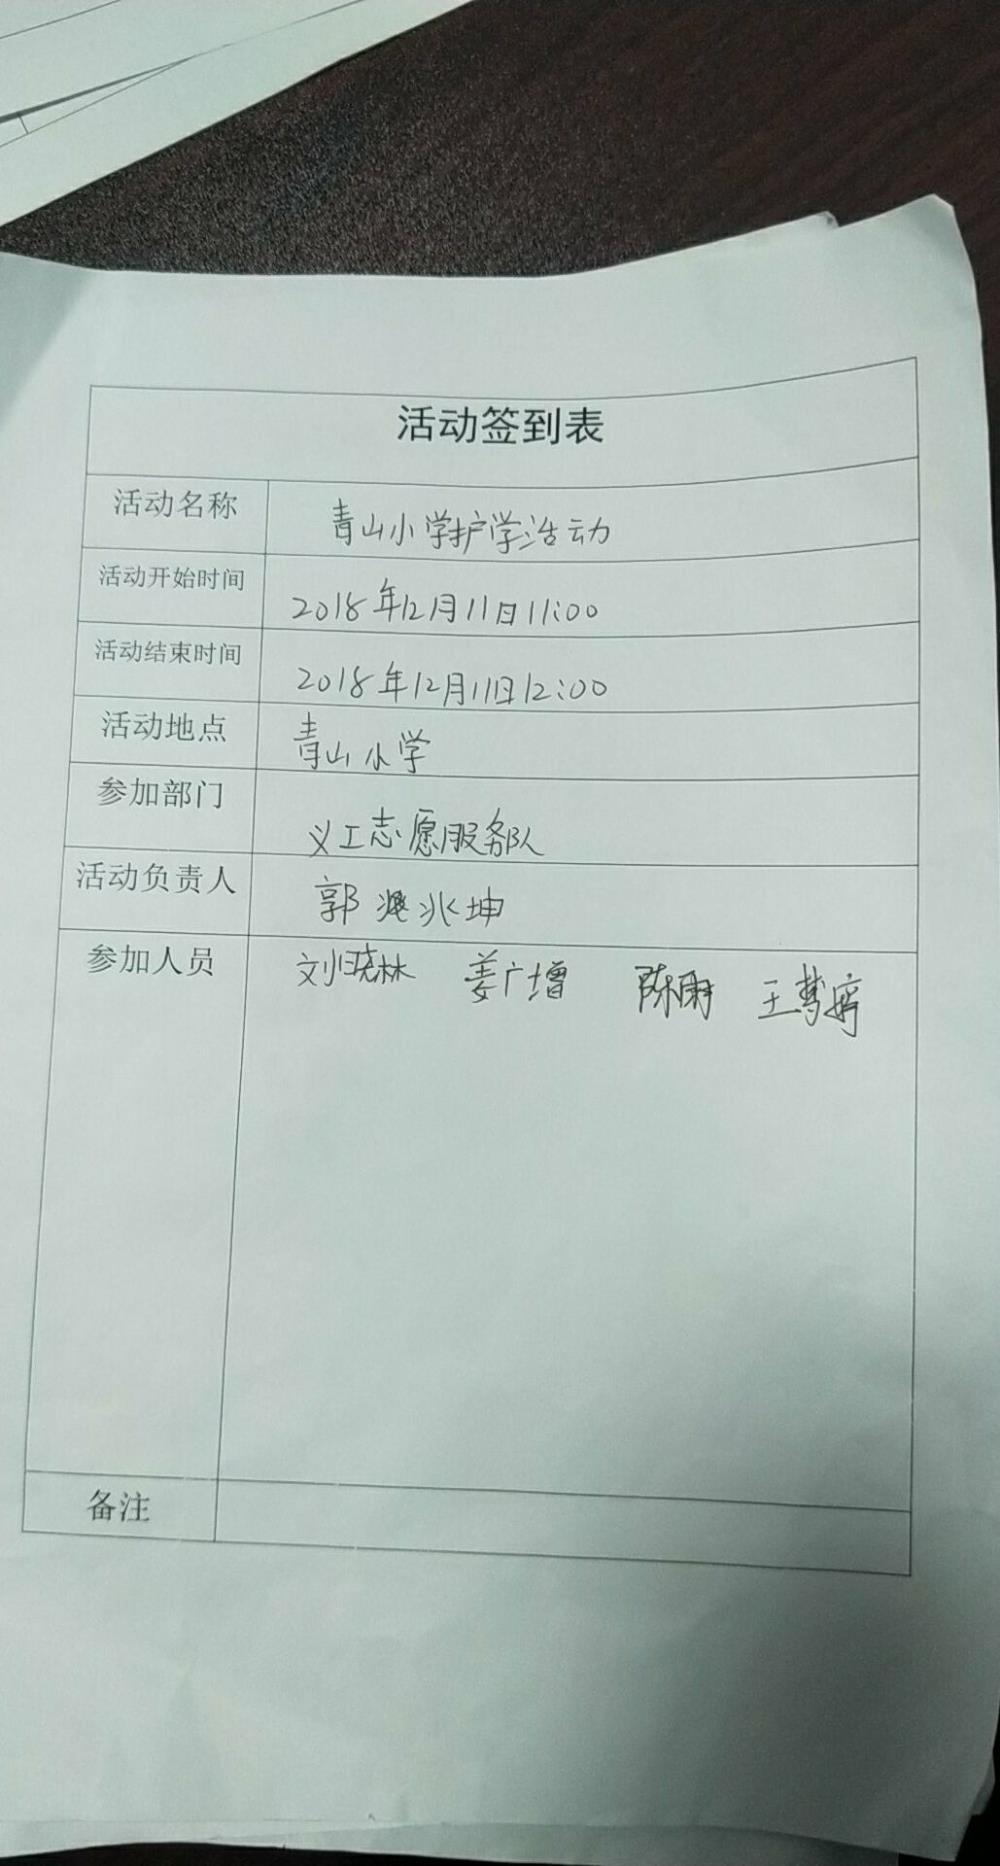 活动签到表
活动名称 青山小学护学活动
活动开始时间 2018年12月11日11:00
活动结束时间 2018年12月11日12:00
活动地点 青山小学
参加部门 义工志愿服务队
活动负责人 郭兆坤
参加人员 刘晓林 姜广增 陈雨 王慧婷
备注